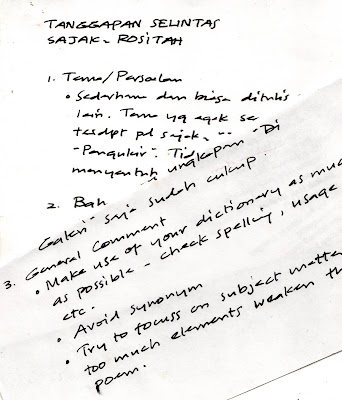 TANGGAPAN SELINTAS
SAJAK - ROSITAH
1. Tema/Persoalan
• Sederhana dan biasa ditulis
lain. Tema yg agak se
terdpt pd sajak
"Pengukir". Tid
menyentuh ungkapan "Di
2. Bah
Galeri" saja sudah cukup.
3. General Comment
• Make use of your dictionary as much
as possible - check spelling, usage
etc.
• Avoid synonym
• Try to focuss on subject matter
too much elements weaken th
poem.